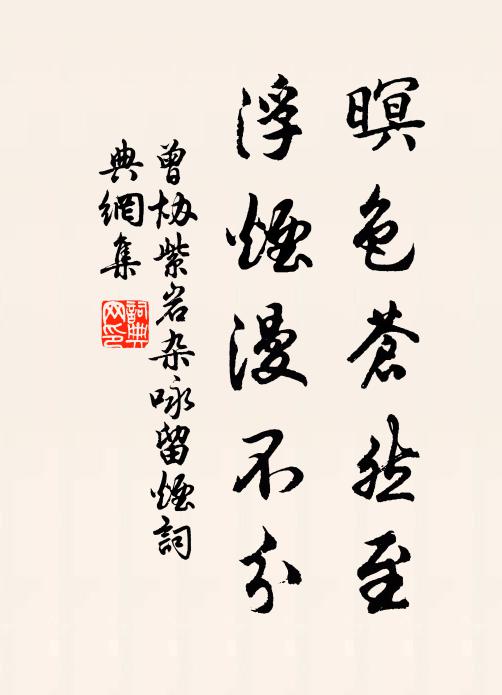 暝色蒼然至
浮煙漫不分
曾协紫岩杂咏留煙詞
典網集
詞典網印